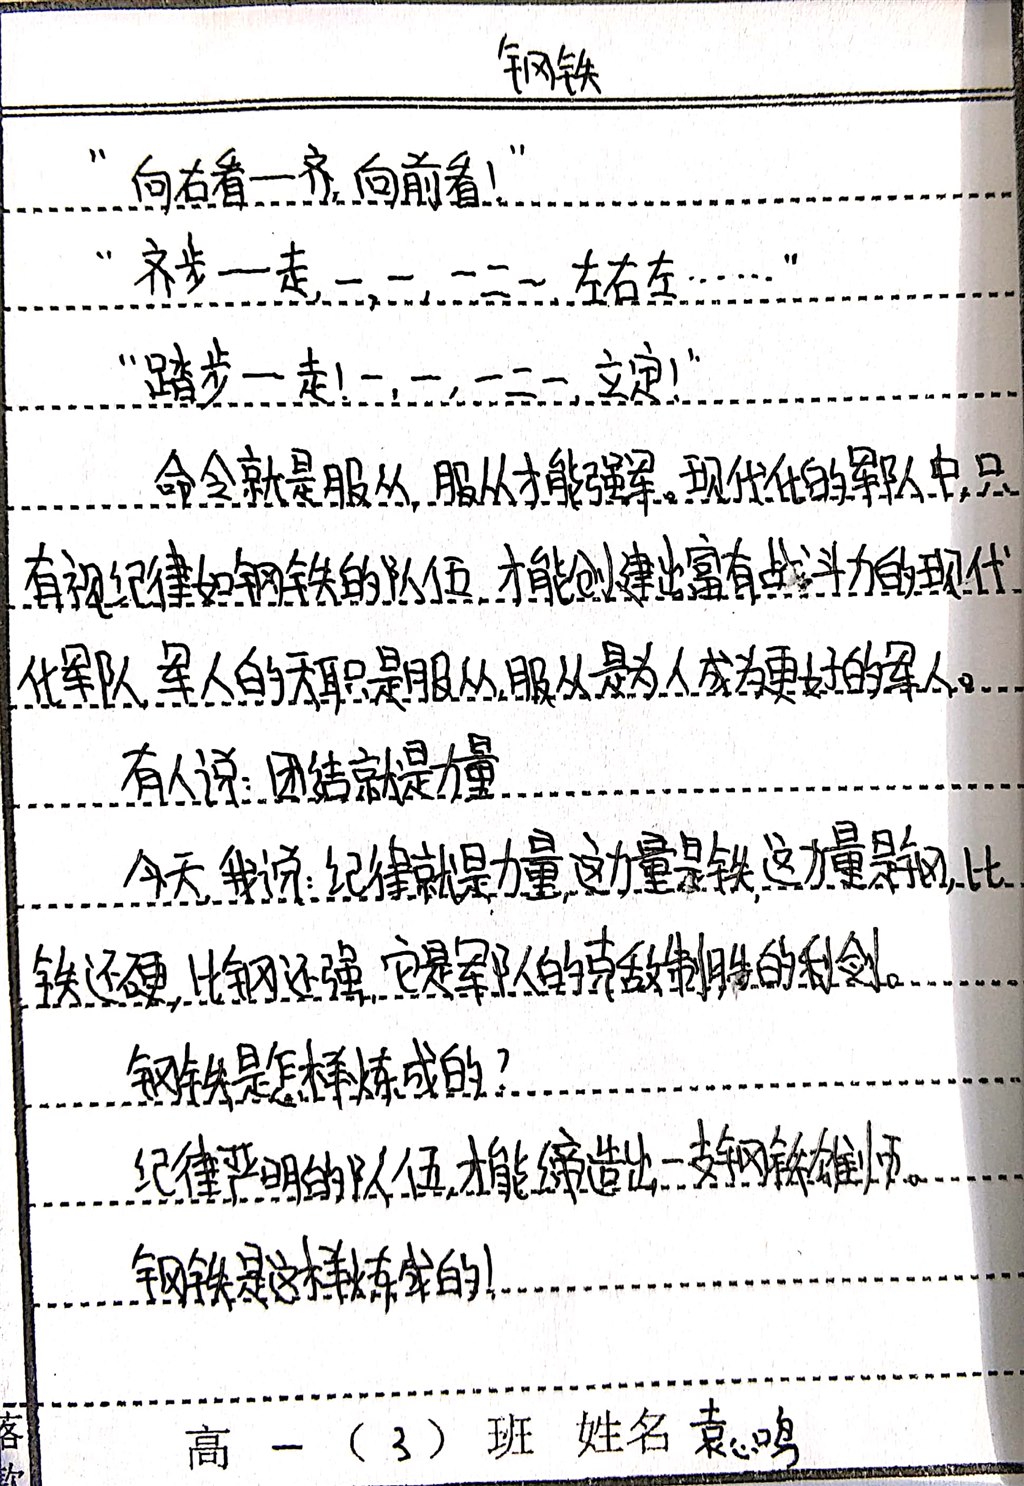 钢铁
“向右看一齐,向前看!”
“齐步一走,一,一,一二一,左右左……”
“踏步一走!一,一,一二一,立定!”
命令就是服从,服从才能强军。现代化的军队中,只
有视纪律如钢铁的队伍,才能创建出富有战斗力的现代
化军队,军人的天职是服从,服从是为人成为更好的军人。
有人说:团结就是力量
今天,我说:纪律就是力量,这力量是铁,这力量是钢,比
铁还硬,比钢还强,它是军队的克敌制胜的利剑。
钢铁是怎样炼成的?
纪律严明的队伍,才能缔造出一支钢铁雄师。
钢铁是这样炼成的!
高一(3)班 姓名 袁心鸣
落
款